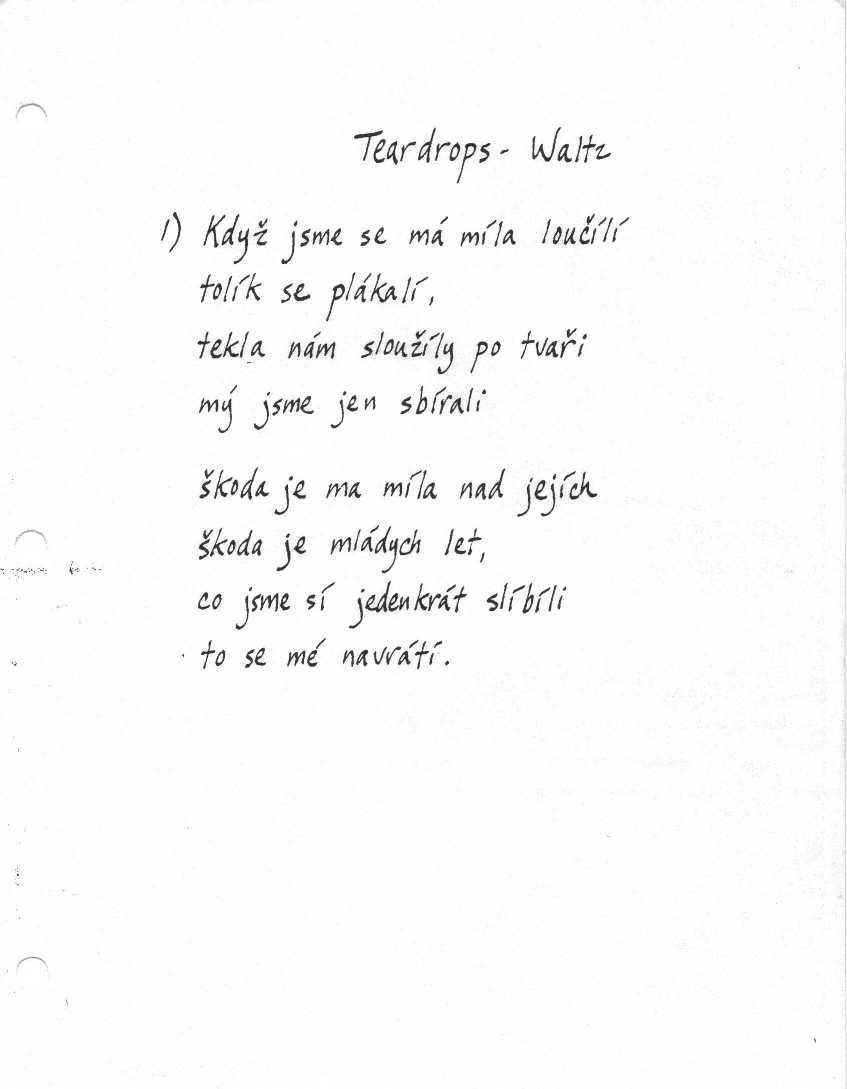 Teardrops - Waltz
1) Když jsme se má míla loučílí
tolík se plákalí,
tekla nám sloužíly po tvaři
mý jsme jen sbírali
škoda je ma míla nad jejích
škoda je mládych let,
co jsme sí jedenkrát slíbíli
to se mé navrátí.